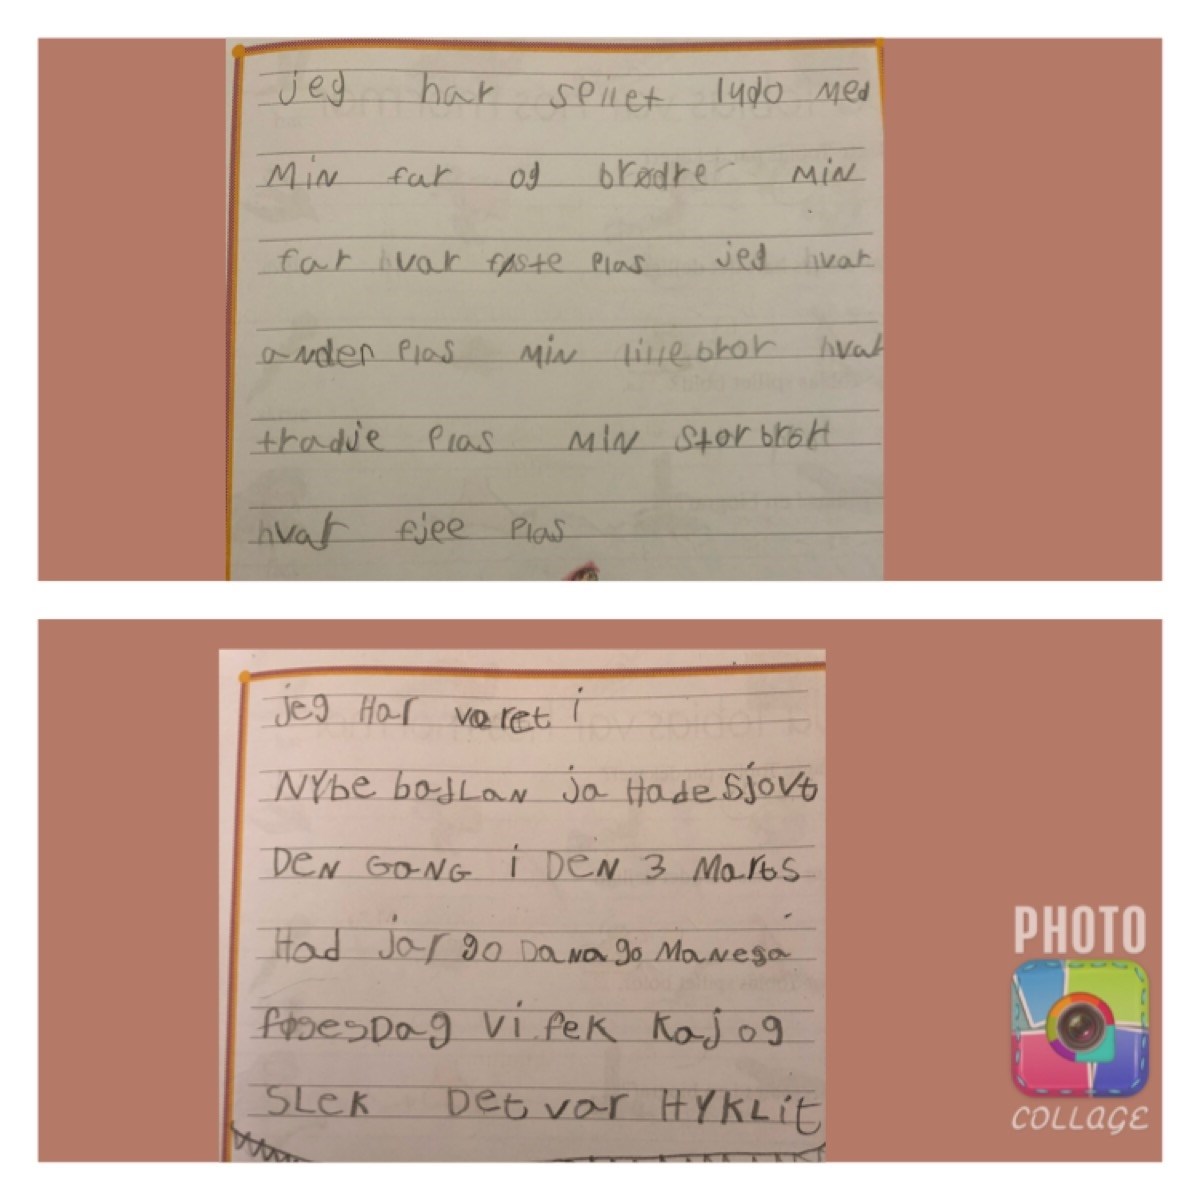 jeg har spillet ludo med
Min far og brødre min
far hvar føste plas jeg hvar
anden plas min lillebror hvar
tradje plas min storbror
hvar fjee plas
jeg Har varet i
NYbe badLan ja Hade sjovt
DeN GaNG i DeN 3 Marts
Had jar go Dana go Manesa
føsesDag vi fek Kaj og
SLek Det var HYKLit
PHOTO
COLLAGE